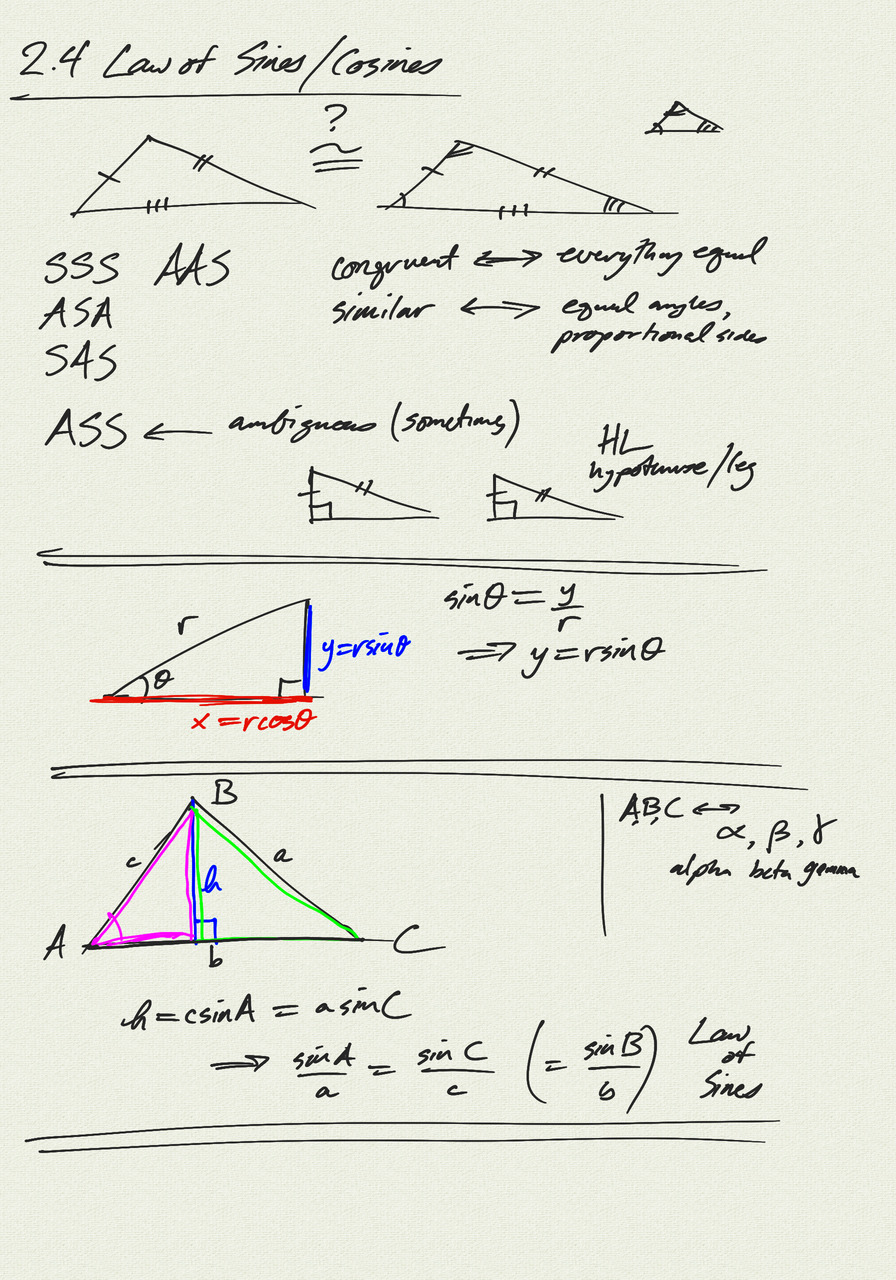 2.4 Law of Sines/Cosines
?
≅
SSS AAS
congruent ↔ everything equal
ASA
similar ↔ equal angles,
proportional sides
SAS
ASS ← ambiguous (sometimes)
HL
hypotenuse/leg
r
θ
y=rsinθ
x=rcosθ
sinθ = y/r
⇒ y=rsinθ
B
c
a
h
A
b
C
A,B,C ↔
α, β, γ
alpha beta gamma
h=csinA = asinC
⇒ sinA/a = sinC/c (= sinB/b)
Law
of
Sines